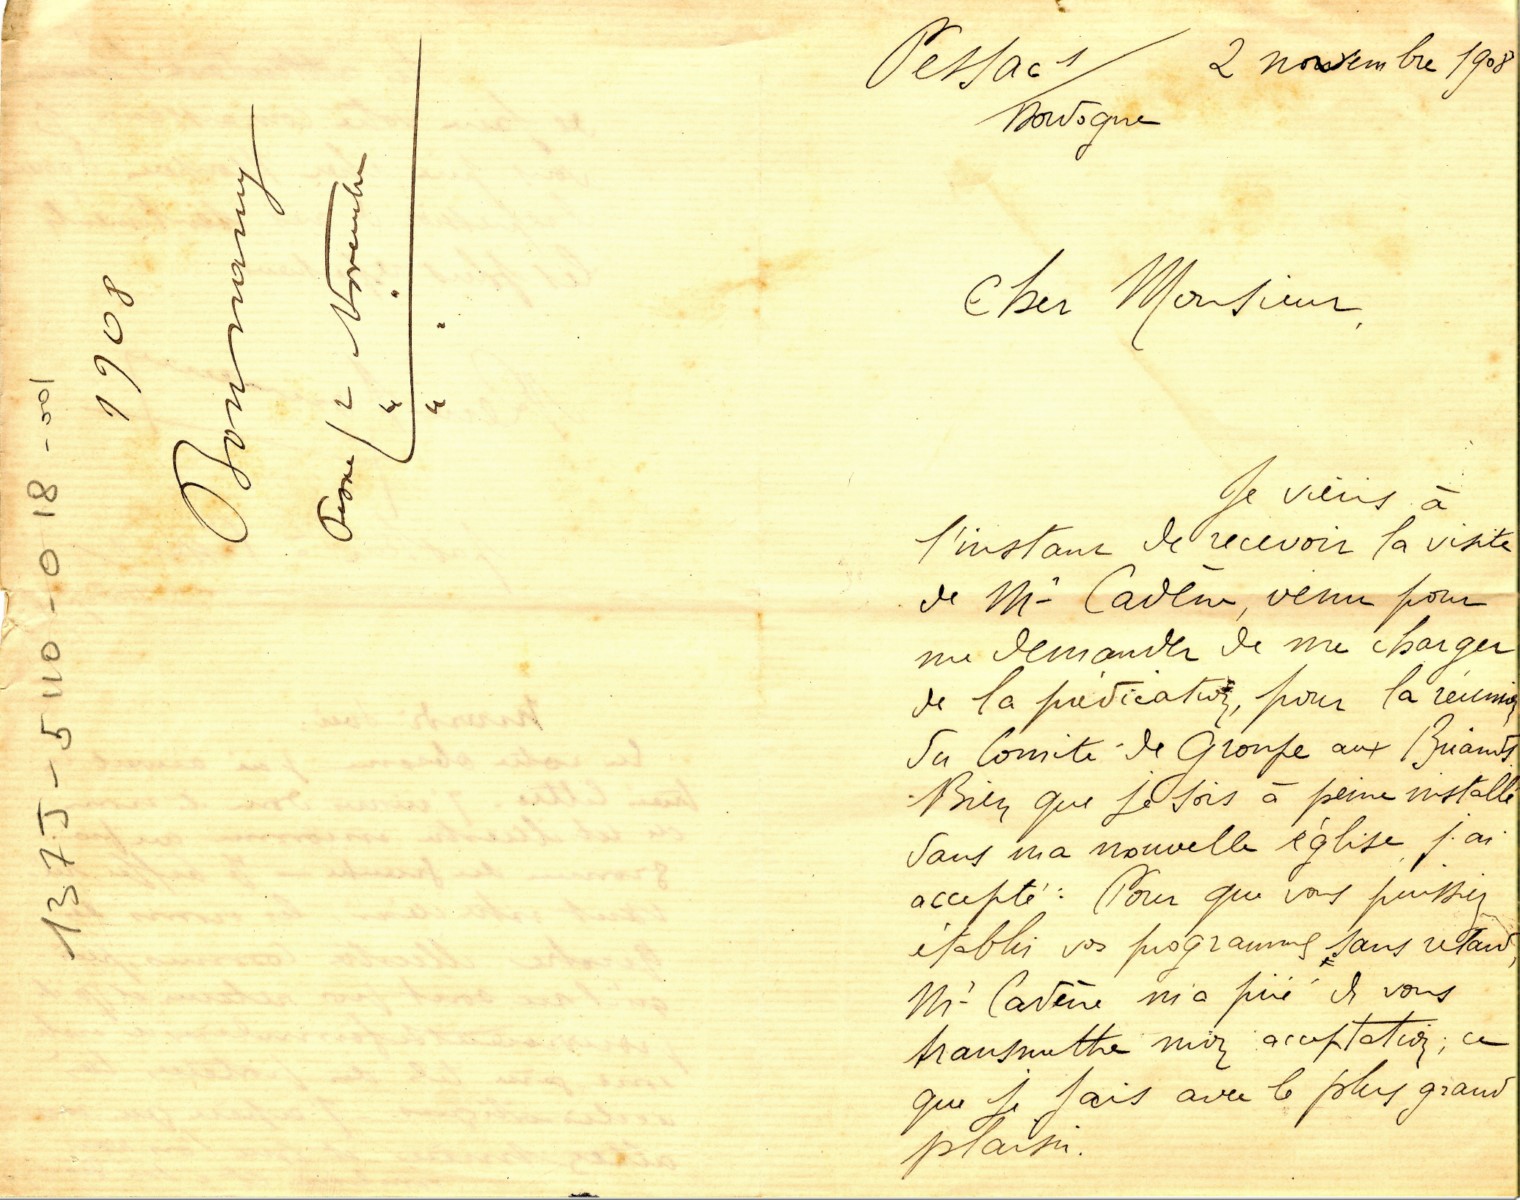 137J-5110-018-001
1908
Bonmarny
2 Novembre
Pessac s/ 2 novembre 1908
Dordogne
Cher Monsieur,
Je viens à
l'instant de recevoir la visite
de Mr Cadène, venu pour
me demander de me charger
de la prédication, pour la réunion
du Comité de Groupe aux Briands
Bien que je sois à peine installé
dans ma nouvelle église j'ai
accepté : Pour que vous puissiez
établir vos programmes sans retard,
Mr Cadène m'a prié de vous
transmettre mon acceptation, ce
que je fais avec le plus grand
plaisir.